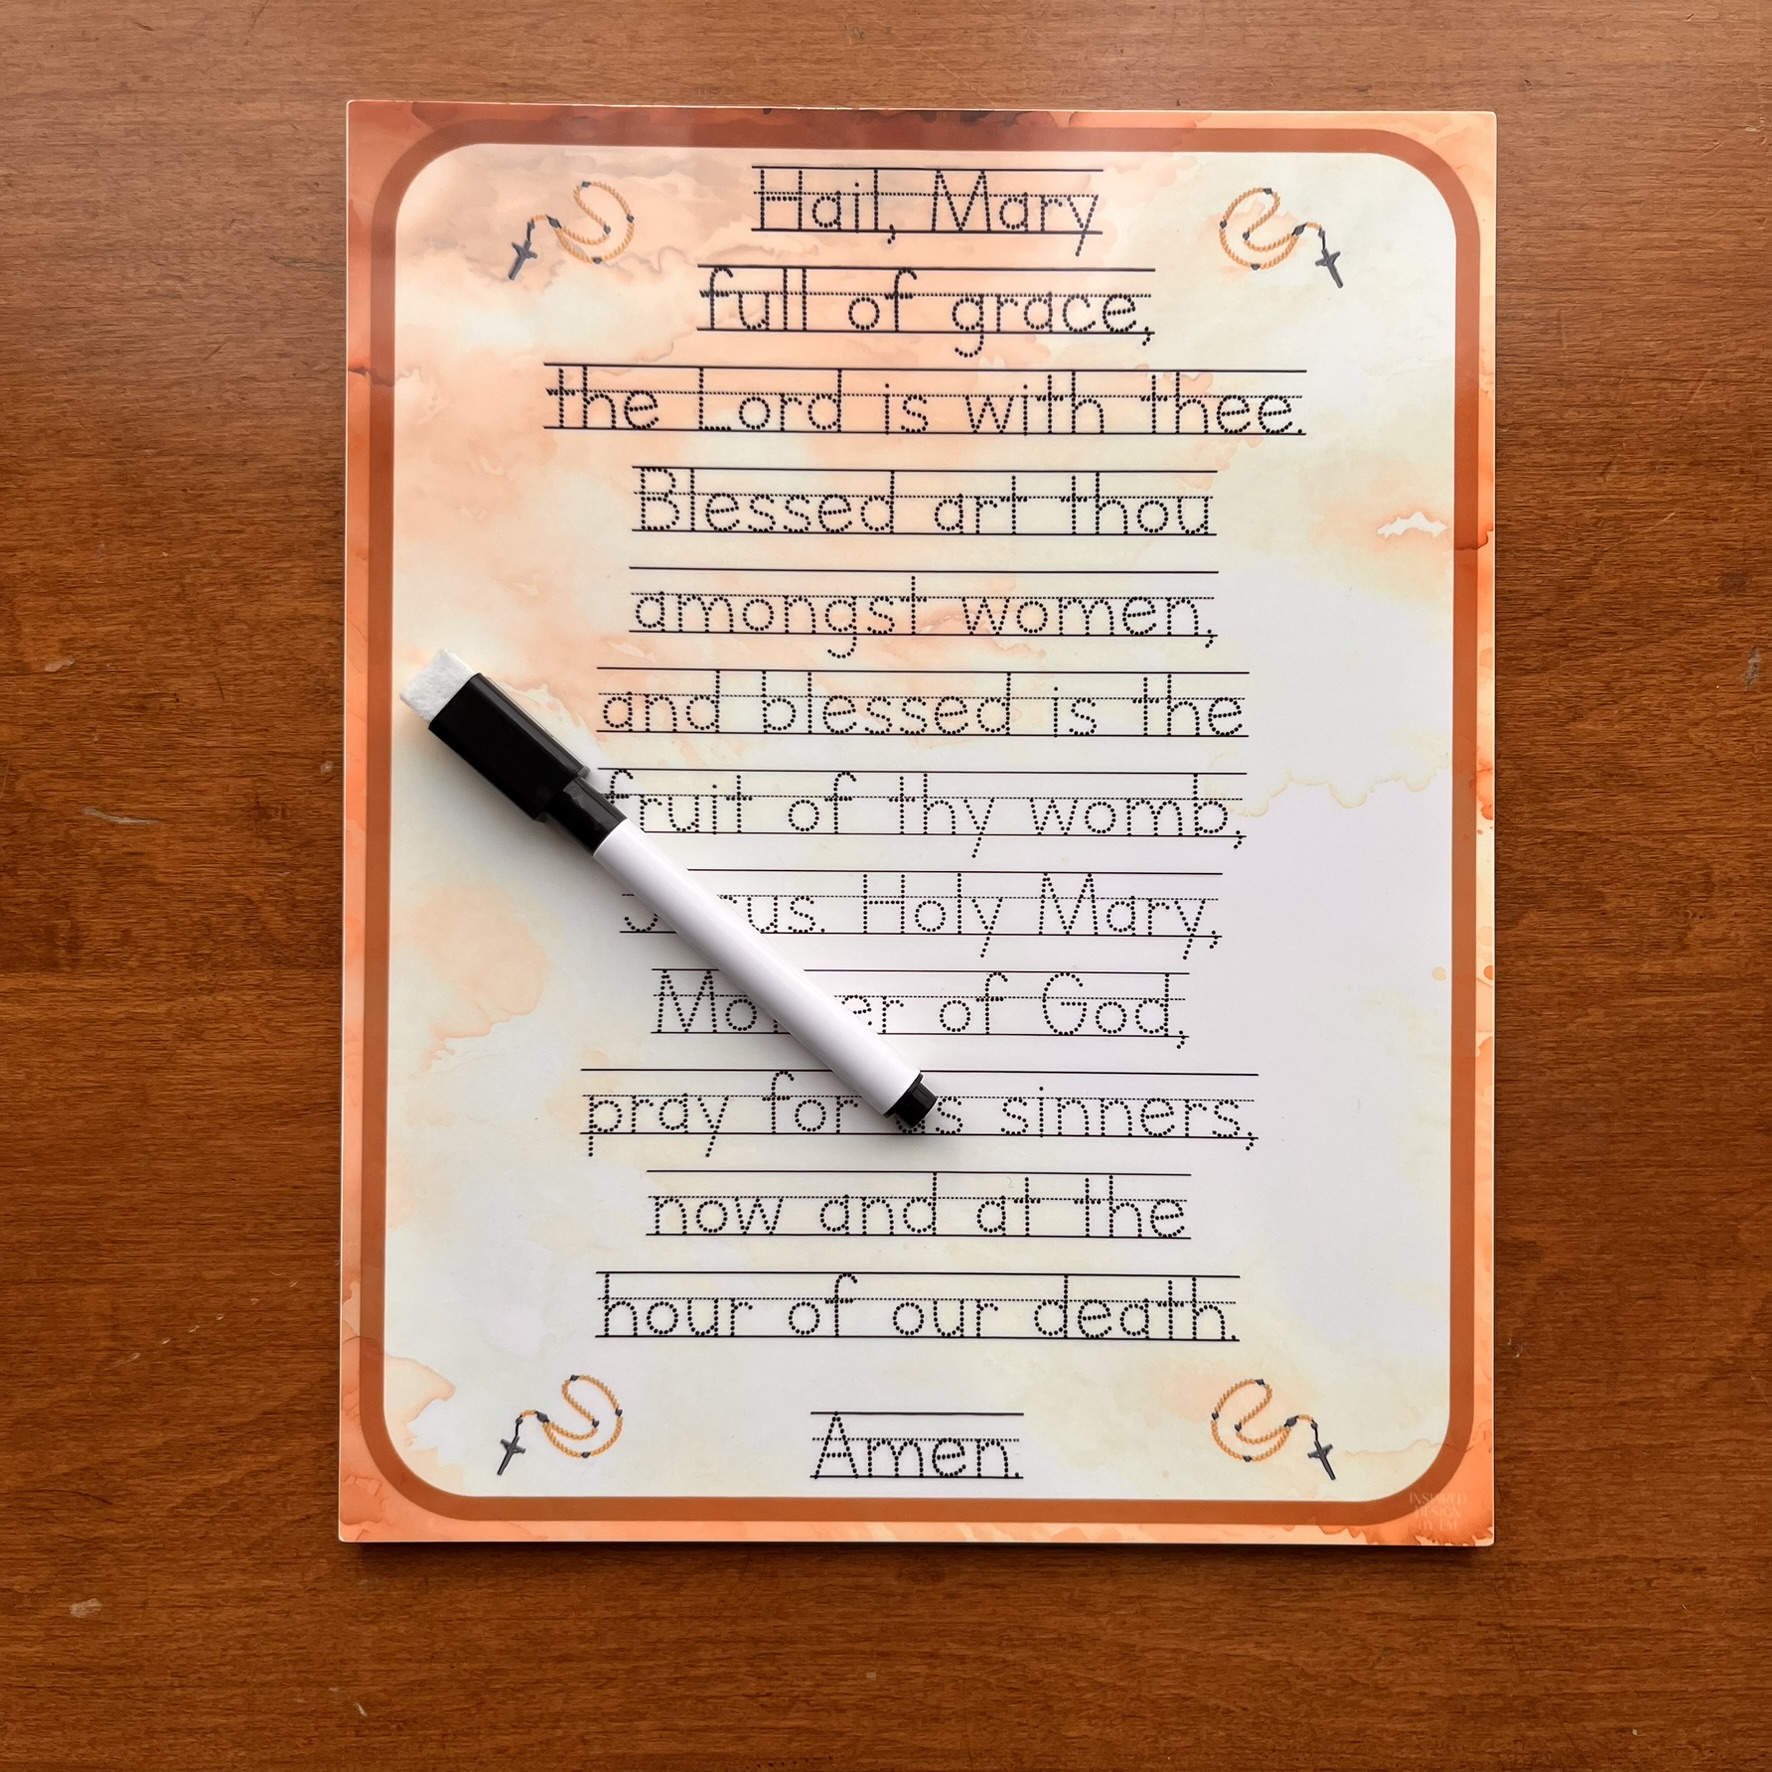 Hail, Mary
full of grace,
the Lord is with thee.
Blessed art thou
amongst women,
and blessed is the
fruit of thy womb,
Holy Mary,
of God,
pray for us sinners,
now and at the
hour of our death.
Amen.
INSPIRED
DESIGN